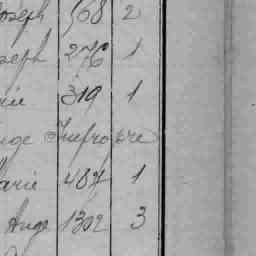 Joseph 568 2
Joseph 276 1
rie 319 1
nge Impropre
arie 487 1
Ange 1302 3